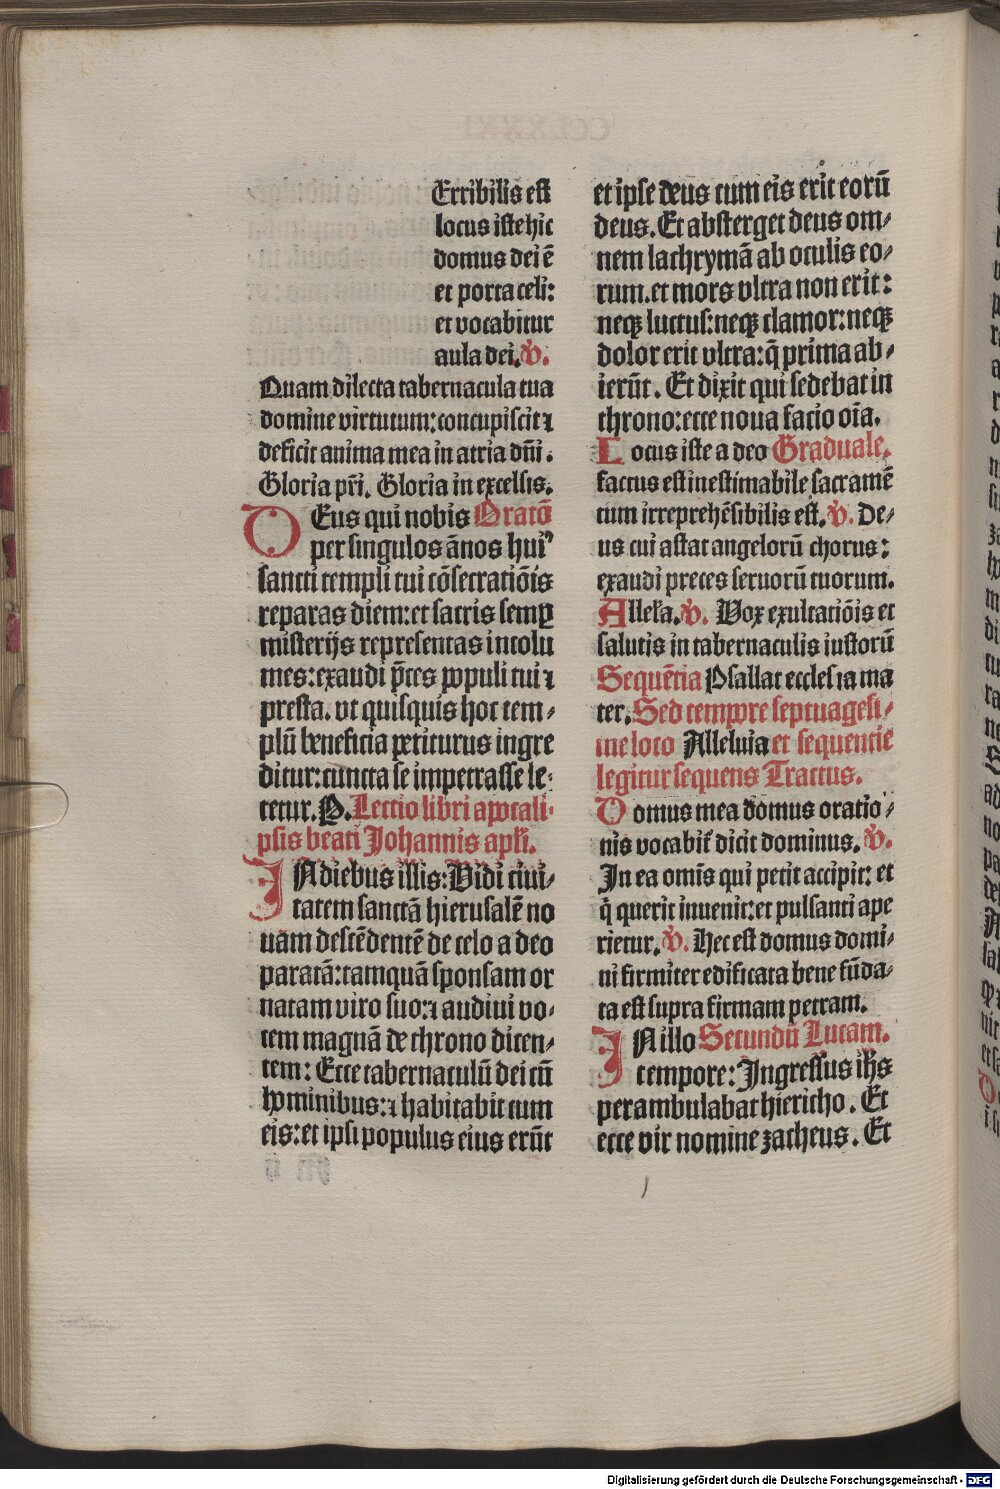 Erribilis est
locus iste hic
domus dei ē
et porta celi:
et vocabitur
aula dei. ꝟ.
Quam dilecta tabernacula tua
domine virtutum: concupiscit ⁊
deficit anima mea in atria dn̄i.
Gloria pr̄i. Gloria in excelsis.
DEus qui nobis Oratō
per singulos ānos hui⁹
sancti templi tui cōsecratiōis
reparas diem: et sacris semꝑ
misterijs representas incolu
mes: exaudi p̄ces populi tui ⁊
presta. vt quisquis hoc tem⸗
plū beneficia petiturus ingre
ditur: cuncta se impetrasse le⸗
tetur. P. Lectio libri apocali⸗
psis beati Johannis apl̄i.
IN diebus illis: Vidi ciui⸗
tatem sanctā hierusalē no
uam descēdentē de celo a deo
paratā: tamquā sponsam or
natam viro suo: ⁊ audiui vo⸗
cem magnā de throno dicen⸗
tem: Ecce tabernaculū dei cū
hominibus: ⁊ habitabit cum
eis: et ipsi populus eius erūt
et ipse deus cum eis erit eorū
deus. Et absterget deus om⸗
nem lachrymā ab oculis eo⸗
rum. et mors vltra non erit:
neqꝫ luctus: neqꝫ clamor: neqꝫ
dolor erit vltra: q̄ prima ab⸗
ierūt. Et dixit qui sedebat in
throno: ecce noua facio oīa.
Locus iste a deo Graduale.
factus est inestimabile sacramē
tum irreprehēsibilis est. ꝟ. De⸗
us cui astat angelorū chorus:
exaudi preces seruorū tuorum.
Allel̄a. ꝟ. Vox exultatiōis et
salutis in tabernaculis iustorū
Sequētia Psallat ecclesia ma
ter. Sed tempore septuagesi⸗
me loco Alleluia et sequentie
legitur sequens Tractus.
Domus mea domus oratio⸗
nis vocabit᷑ dicit dominus. ꝟ.
In ea omīs qui petit accipit: et
q̄ querit inuenit: et pulsanti ape
rietur. ꝟ. Hec est domus domi⸗
ni firmiter edificata bene fūda⸗
ta est supra firmam petram.
IN illo Secundū Lucam.
tempore: Ingressus ihs̄
perambulabat hiericho. Et
ecce vir nomine zacheus. Et
Digitalisierung gefördert durch die Deutsche Forschungsgemeinschaft - DFG